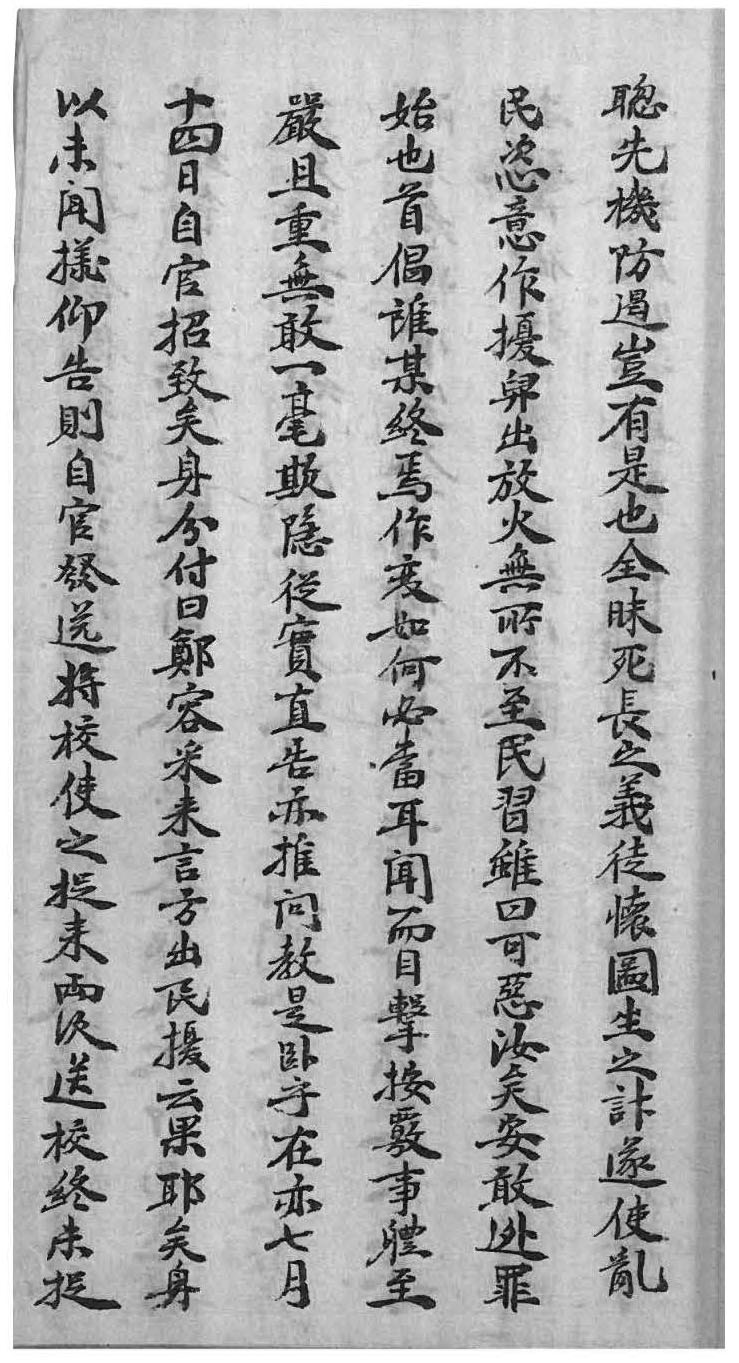 聰先機防遏豈有是也全昧死長之義徒懷圖生之計遂使亂
民恣意作擾舁出放火無所不至民習雖曰可惡汝矣安敢逃罪
始也首倡誰某終焉作変如何必當耳聞而目擊按覈事軆至
嚴且重無敢一毫欺隱從實直告亦推問敎是臥乎在亦七月
十四日自官招致矣身分付曰鄭容釆来言方出民擾云果耶矣身
以未聞㨾仰告則自官發送將校使之捉来両次送校終未捉